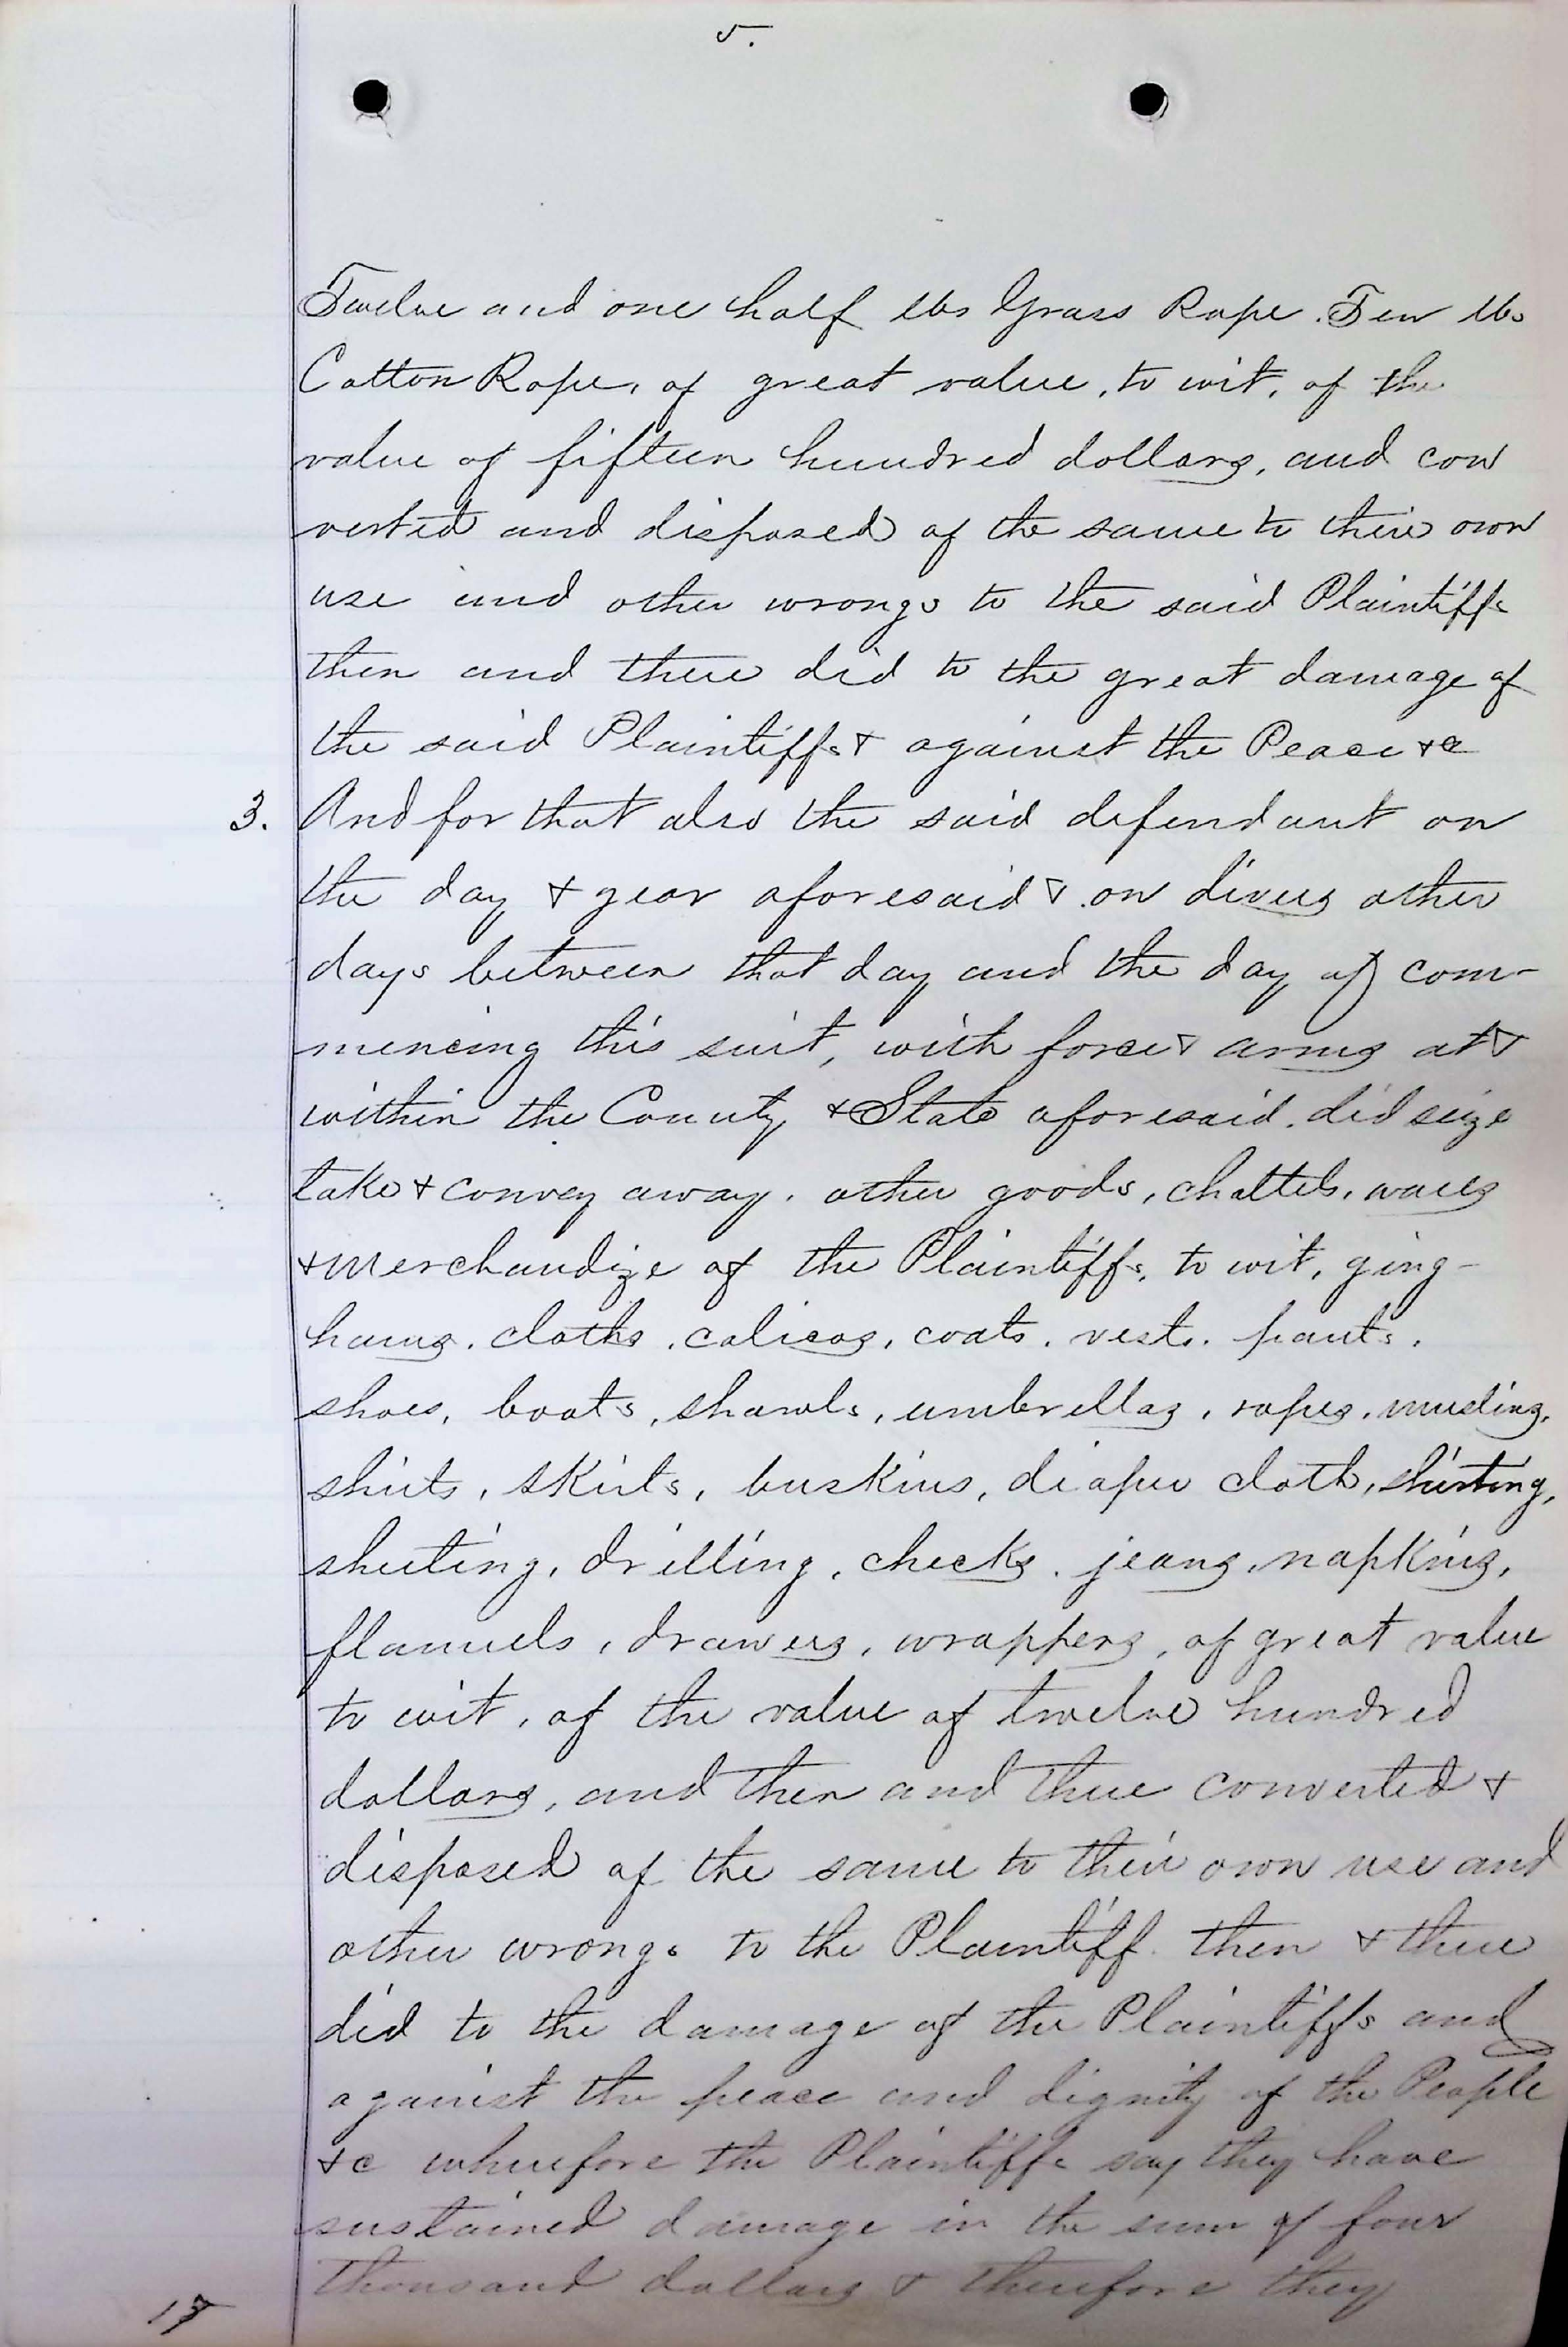 5.
Twelve and one half lbs Grass Rope. Ten lbs
Cotton Rope, of great value, to wit, of the
value of fifteen hundred dollars, and con
verted and disposed of the same to their own
use and other wrongs to the said Plaintiffs
then and there did to the great damage of
the said Plaintiffs & against the Peace &c
3. And for that also the said defendant on
the day & year aforesaid & on divers other
days between that day and the day of com-
mencing this suit, with force & arms at &
within the County & State aforesaid. did seize
take & convey away. other goods, chattels, wares
& merchandize of the Plaintiffs, to wit, ging-
hams. cloths, calicos, coats. vests. pants.
shoes, boots, shawls, umbrellas, ropes, muslins,
shirts, skirts, buskins, diaper cloth, shirting,
sheeting, drilling, checks. jeans, napkins,
flannels, drawers, wrappers, of great value
to wit, of the value of twelve hundred
dollars, and then and there converted &
disposed of the same to their own use and
other wrongs to the Plaintiff then & there
did to the damage of the Plaintiffs and
against the peace and dignity of the People
&c wherefore the Plaintiffs say they have
sustained damage in the sum of four
thousand dollars & therefore they
17